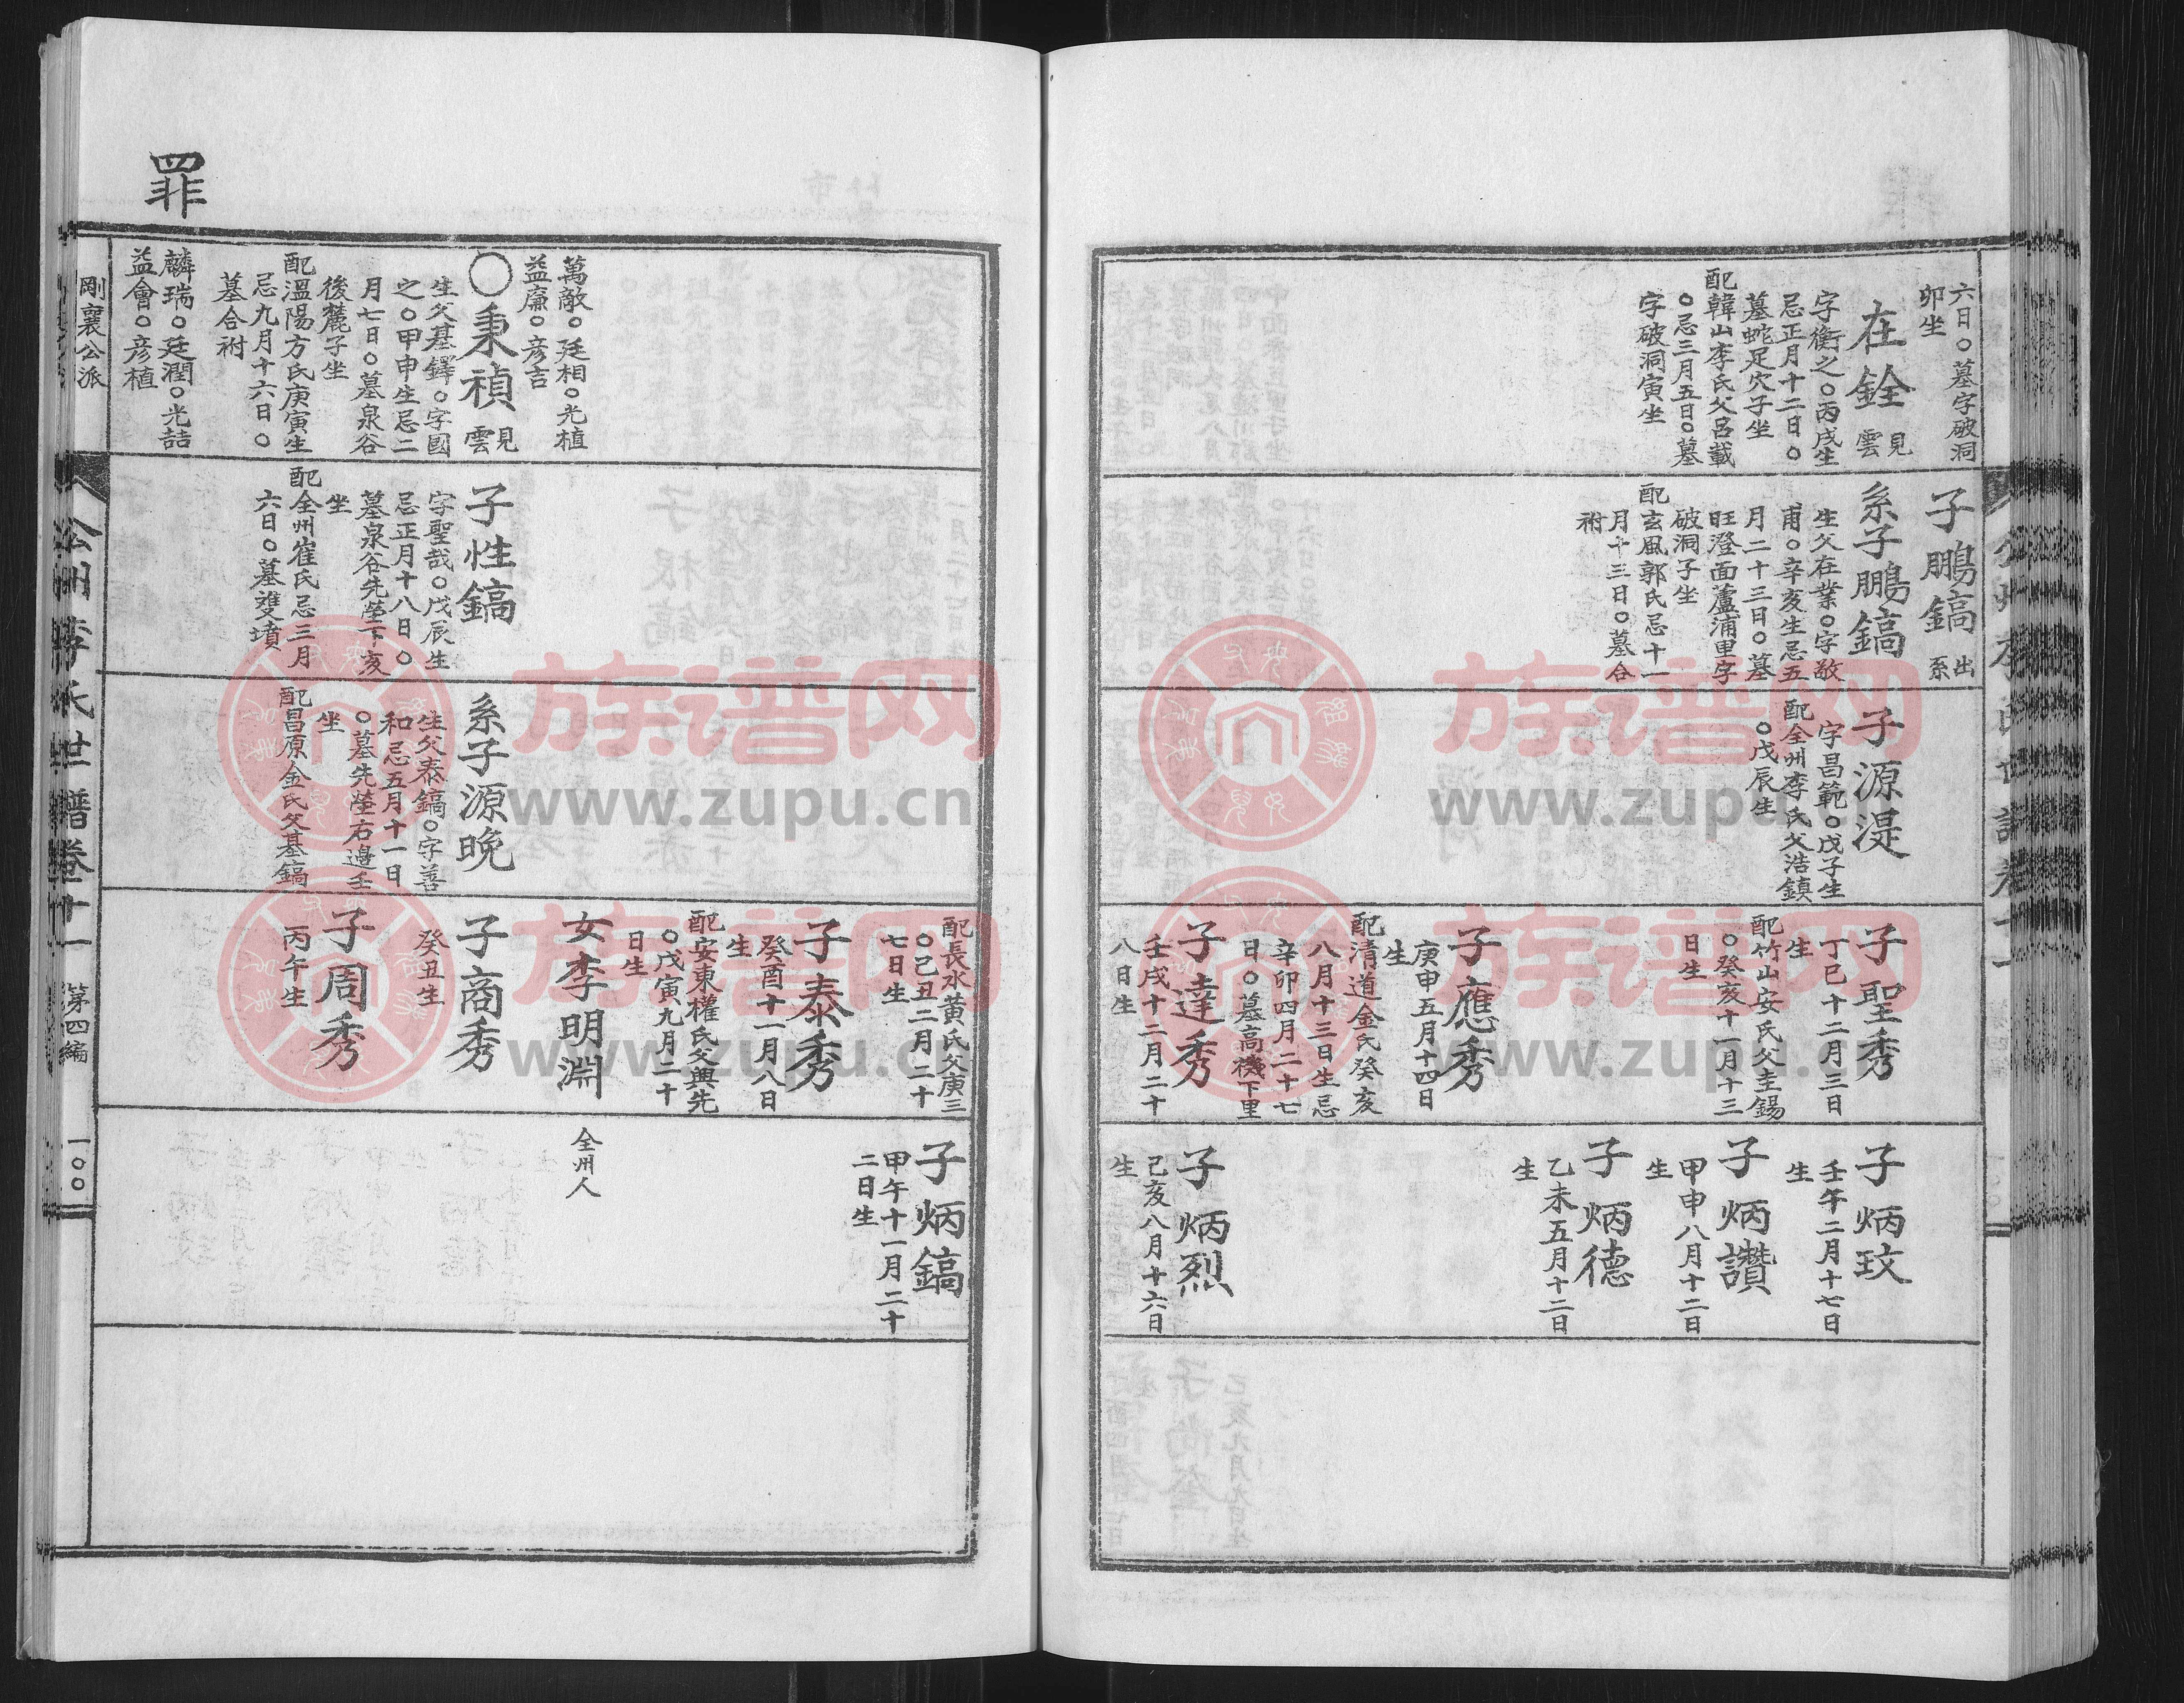 六日○墓字破洞
卯坐
在銓 見雲
字衡之○丙戌生
忌正月十二日○
墓蛇足穴子坐
配韓山李氏父呂載
○忌三月五日○墓
字破洞寅坐
子鵬鎬 出系
系子鵬鎬
生父在業○字敬
甫○辛亥生忌五
月二十三日○墓
旺澄面蘆浦里字
破洞子坐
配玄風郭氏忌十一
月十三日○墓合
祔
子源湜
字昌範○戊子生
配全州李氏父浩鎮
○戊辰生
子聖秀
丁巳十二月三日
生
配竹山安氏父圭錫
○癸亥十一月十三
日生
子應秀
庚申五月十四日
生
配清道金氏癸亥
八月十三日生忌
辛卯四月二十七
日○墓高機下里
子達秀
壬戌十二月二十
八日生
子炳玟
壬午二月十七日
生
子炳讚
甲申八月十二日
生
子炳德
乙未五月十二日
生
子炳烈
己亥八月十六日
生
罪
萬敵○廷相○光植
益廉○彦吉
○秉禎 見雲
生父基鐸○字國
之○甲申生忌二
月七日○墓泉谷
後麓子坐
配溫陽方氏庚寅生
忌九月十六日○
墓合祔
麟瑞○廷潤○光喆
益會○彦植
子性鎬
字聖哉○戊辰生
忌正月十八日○
墓泉谷先塋下亥
坐
配全州崔氏忌三月
六日○墓雙墳
系子源晩
生父泰鎬○字善
和忌五月十一日
○墓先塋右邊壬
坐
配昌原金氏父基鎬
配長水黃氏父庚三
○己丑二月二十
七日生
子泰秀
癸酉十一月八日
生
配安東權氏父興先
○戊寅九月二十
日生
女李明淵
子商秀
癸丑生
子周秀
丙午生
子炳鎬
甲午十一月二十
二日生
全州人
剛襄公派
公州李氏世譜卷十一 第四編 一○○
族谱网
www.zupu.cn
族谱网
www.zupu.cn
族谱网
www.zupu.cn
族谱网
www.zupu.cn